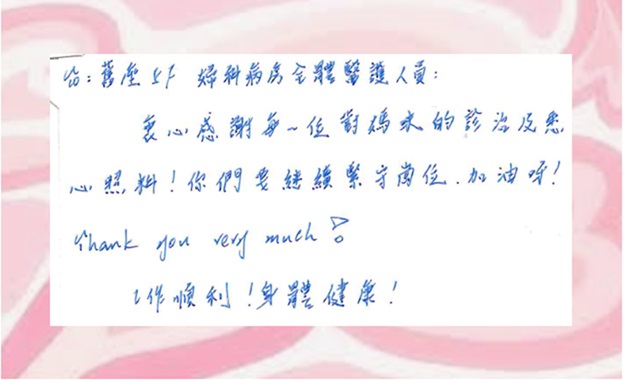 To：舊座5F 婦科病房全體醫護人員：
衷心感謝每一位對媽咪的診治及悉
心照料！你們要繼續緊守崗位．加油呀！
Thank you very much！
工作順利！身體健康！